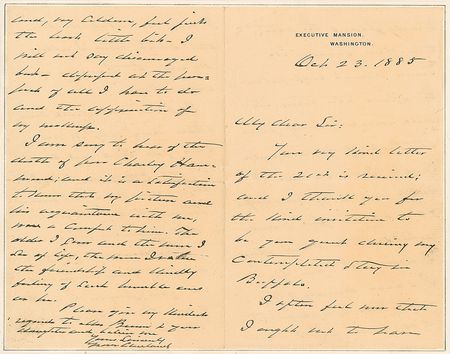 EXECUTIVE MANSION.
WASHINGTON.
Oct 23. 1885
My dear Sir:
Your very kind letter
of the 20th is received;
and I thank you for
the kind invitation to
be your guest during my
contemplated stay in
Buffalo.
I often feel now that
I ought not to have
and, very seldom, feel just
the least little bit. I
will not say discouraged
but - at the
of all I have to do
and the of
my
I am sorry to hear of the
death of poor Charley
and it is a satisfaction
to know that my picture and
his acquaintance with me,
was a comfort to him. The
older I grow and the more I
see of life, the more I value
the friendship and kindly
feeling of such humble ones
as he.
Please give my kindest
regards to Mrs & your
daughter and believe me
Yours sincerely
Grover Cleveland